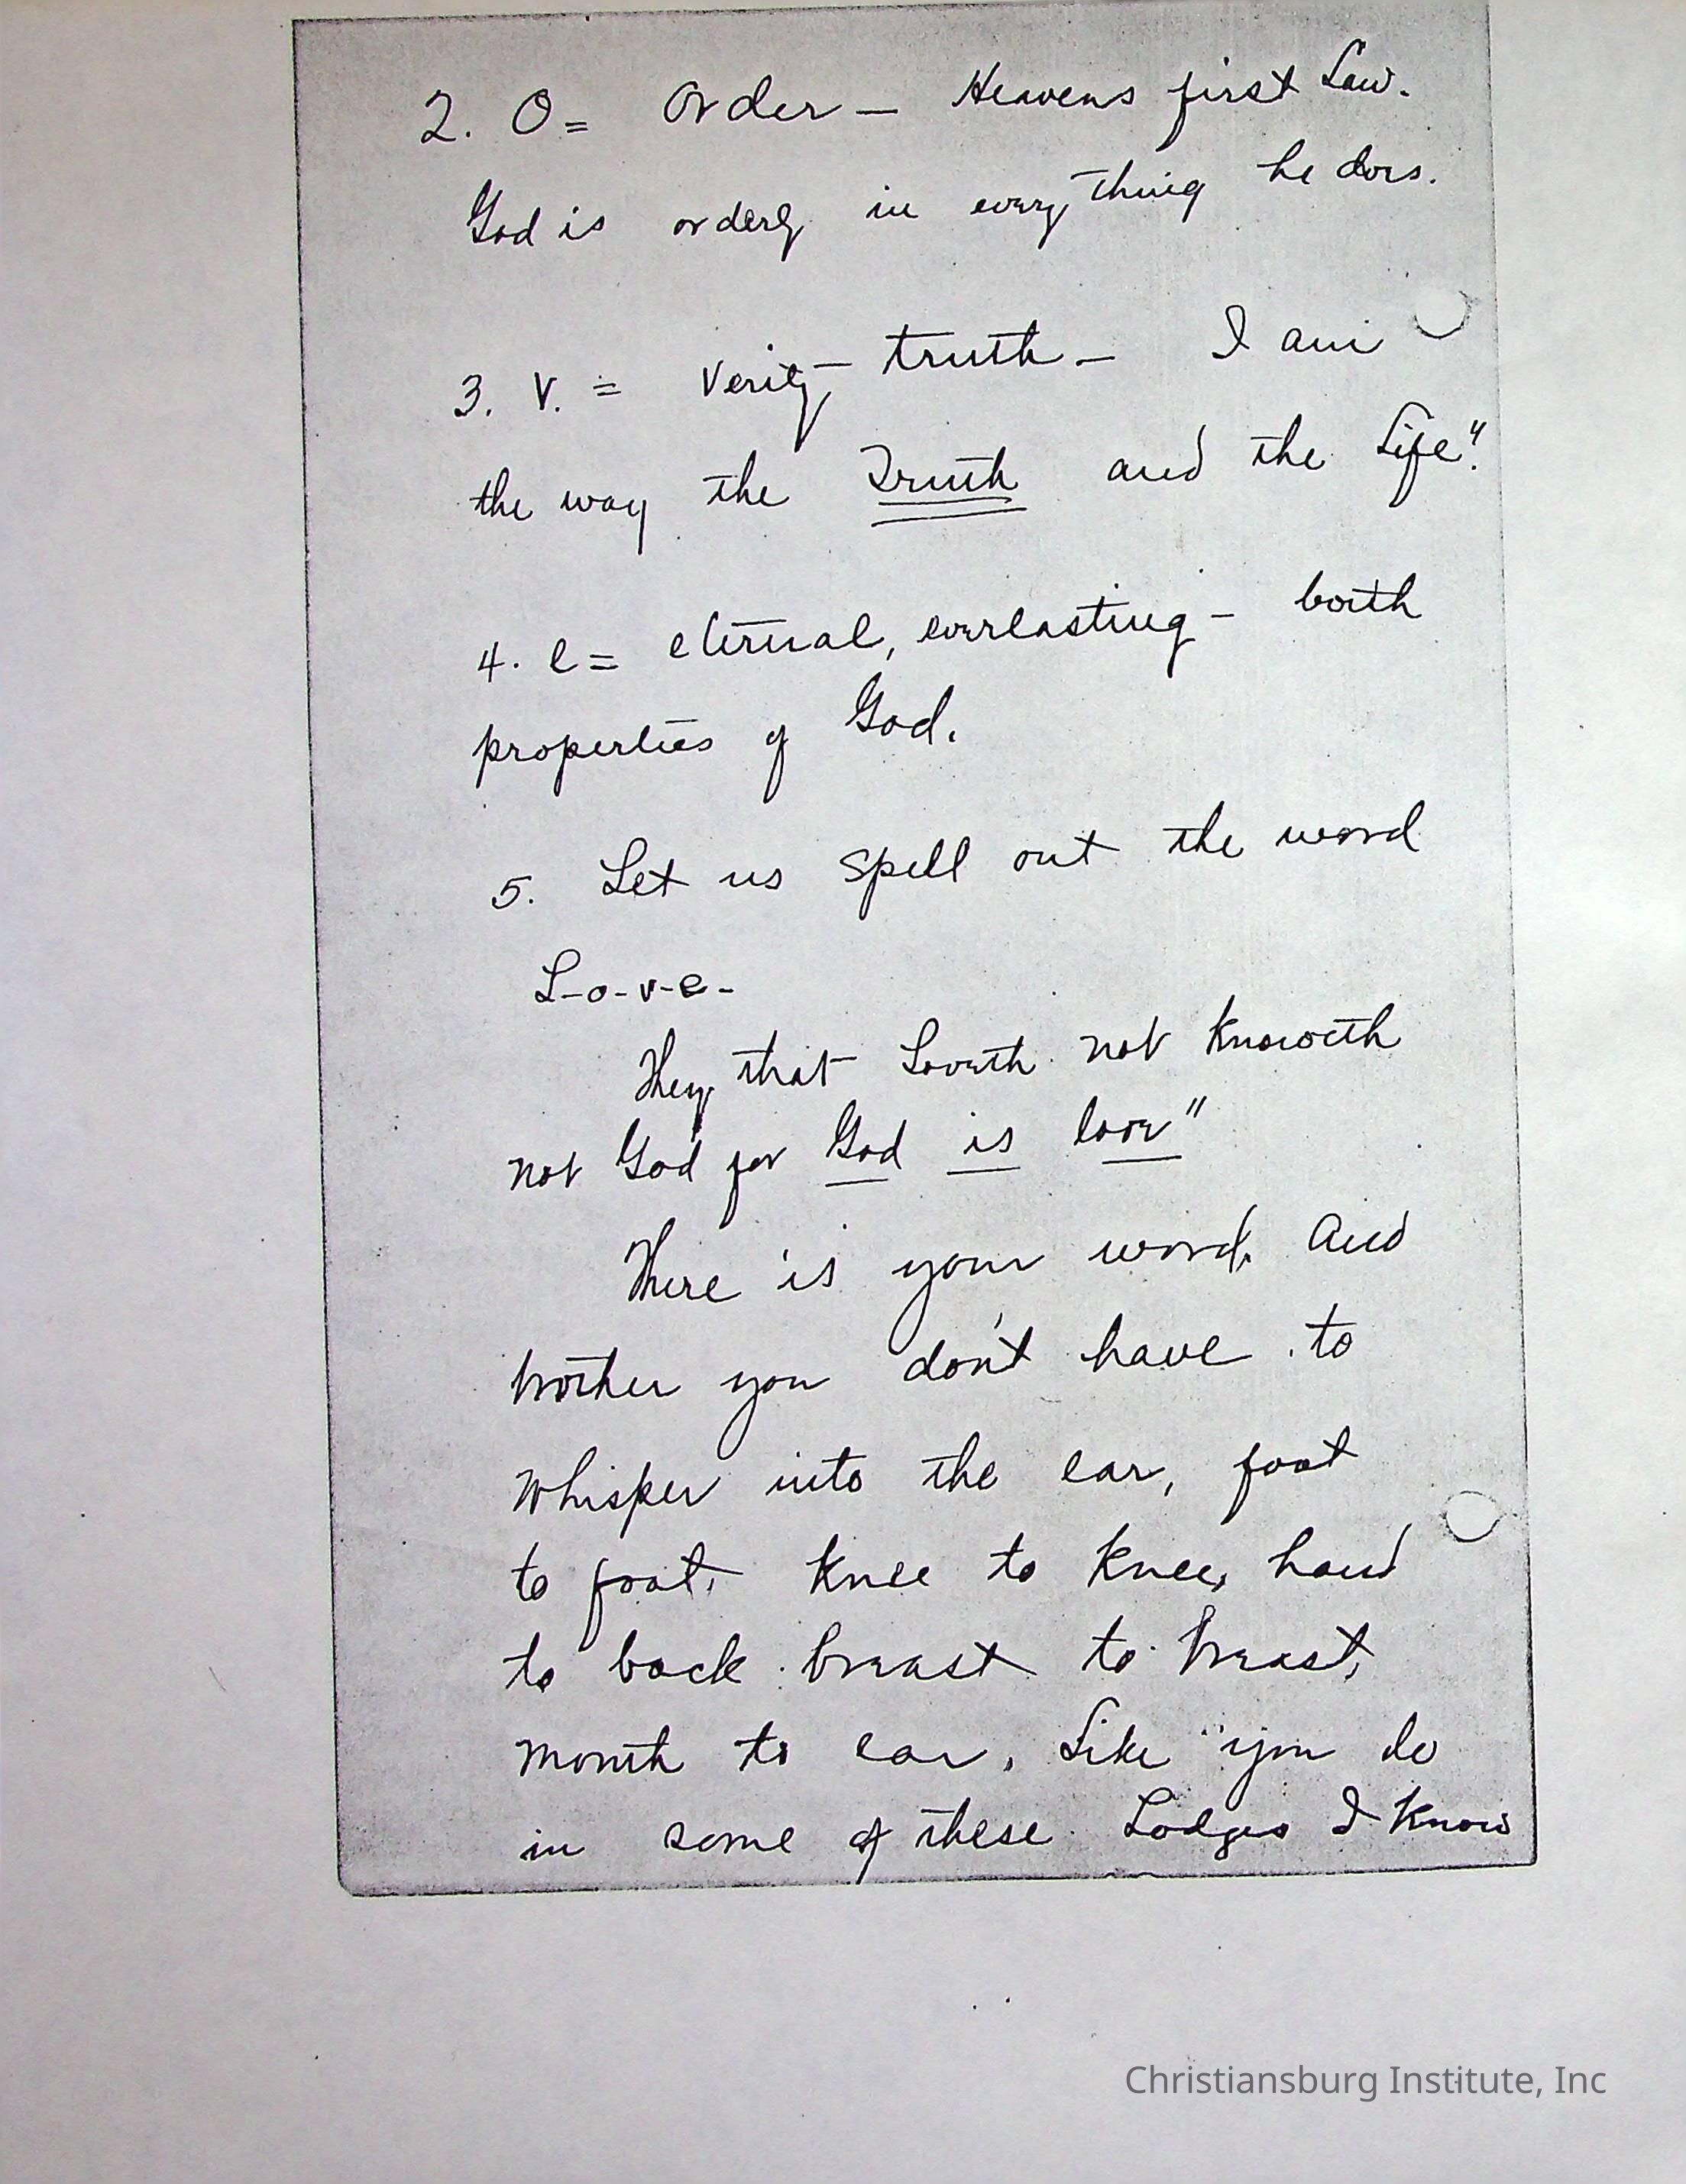 2. O = Order — Heavens first Law.
God is orderly in every thing he does.
3. V. = Verity — truth — I am
the way the Truth and the Life".
4. e = eternal, everlasting — both
properties of God.
5. Let us spell out the word
L-o-v-e-
They that Loveth not Knoweth
not God for God is love"
There is your word, And
brother you don't have to
whisper into the ear, foot
to foot, Knee to Knee, hand
to back breast to breast,
mouth to ear, Like you do
in some of these Lodges I Know
Christiansburg Institute, Inc